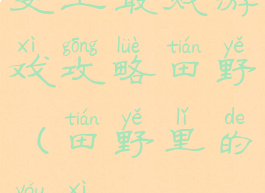 游
xì gōng lüè tián yě
戏 攻 略 田 野
tián yě lǐ de
（ 田 野 里 的
yóu xì